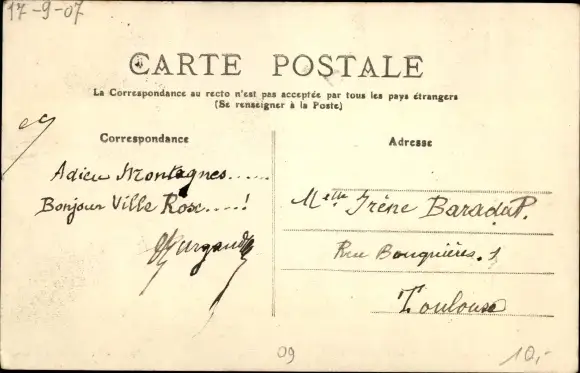 17-9-07
CARTE POSTALE
La Correspondance au recto n'est pas acceptée par tous les pays étrangers
(Se renseigner à la Poste)
Correspondance
Adresse
Adieu Montagnes......
Bonjour Ville Rose.....!
Melle Irène Barada P.
Rue Bouquières. 1
Toulouse
09
10,-